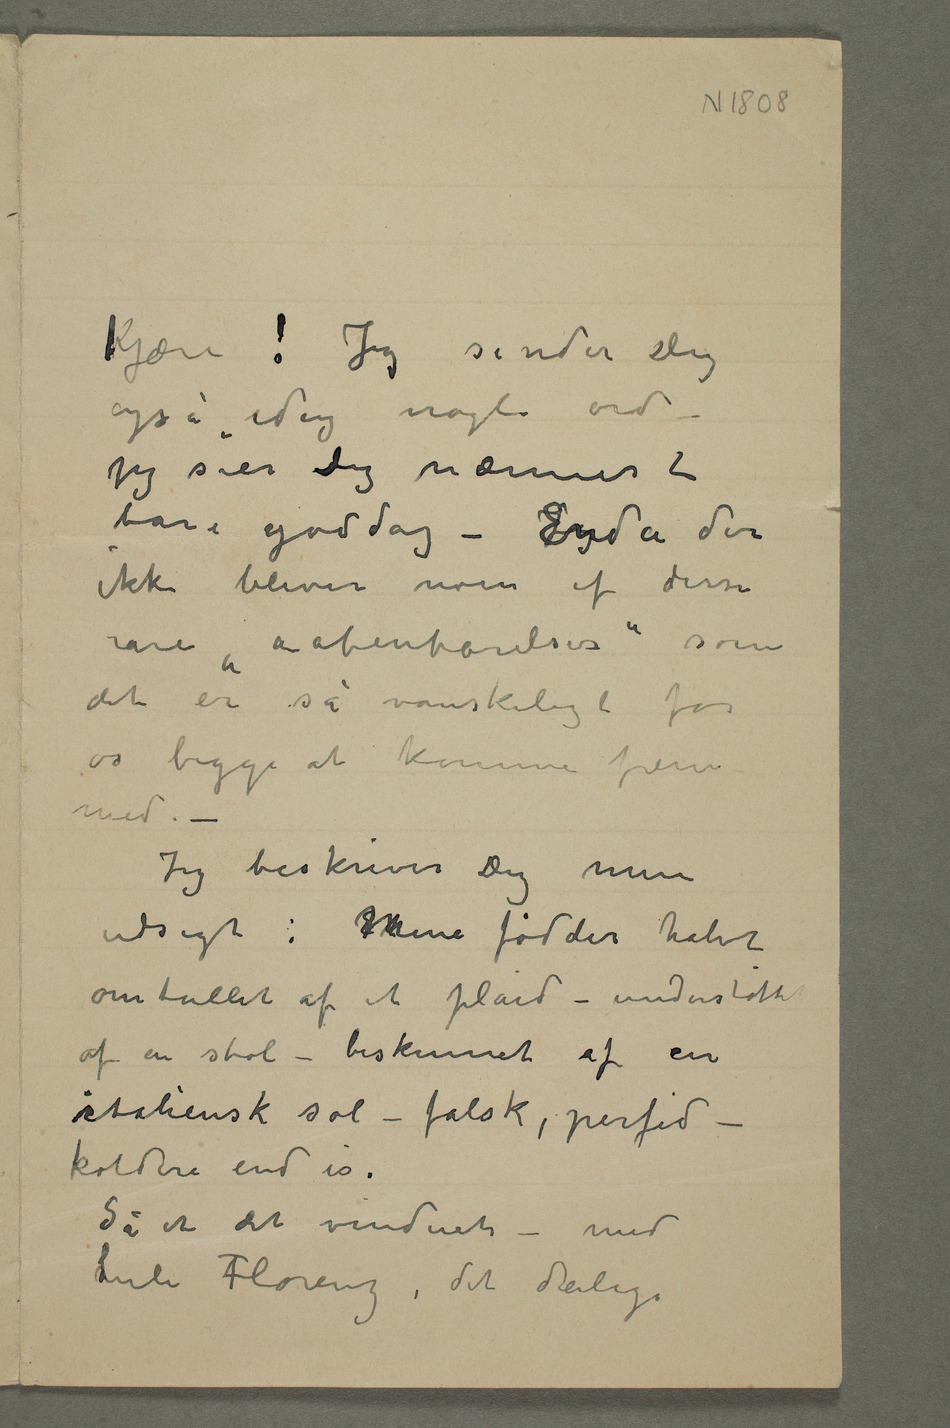 N 1808
Kjære ! Jeg sender Dig
også idag nogle ord –
jeg sier Dig nærmest
bare goddag – Enda der
ikke bliver noen af disse
rare „aabenbarelser“ som
det er så vanskeligt for
os begge at komme frem
med. –
Jeg beskriver Dig min
udsigt : Mine fødder halvt
omhullet af et plaid – understøttet
af en stol – beskinnet af en
italiensk sol – falsk, perfid –
koldere end is.
Så et det vinduet – med
hele Florenz, det deilige